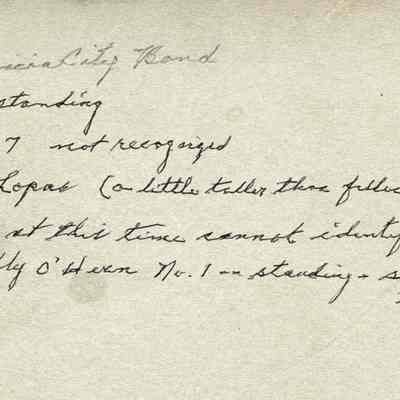 nicia City Band
standing
7 not recognized
Lopas (a little taller than fellow
at this time cannot identify
lly O'Hern No. 1 -- standing - s